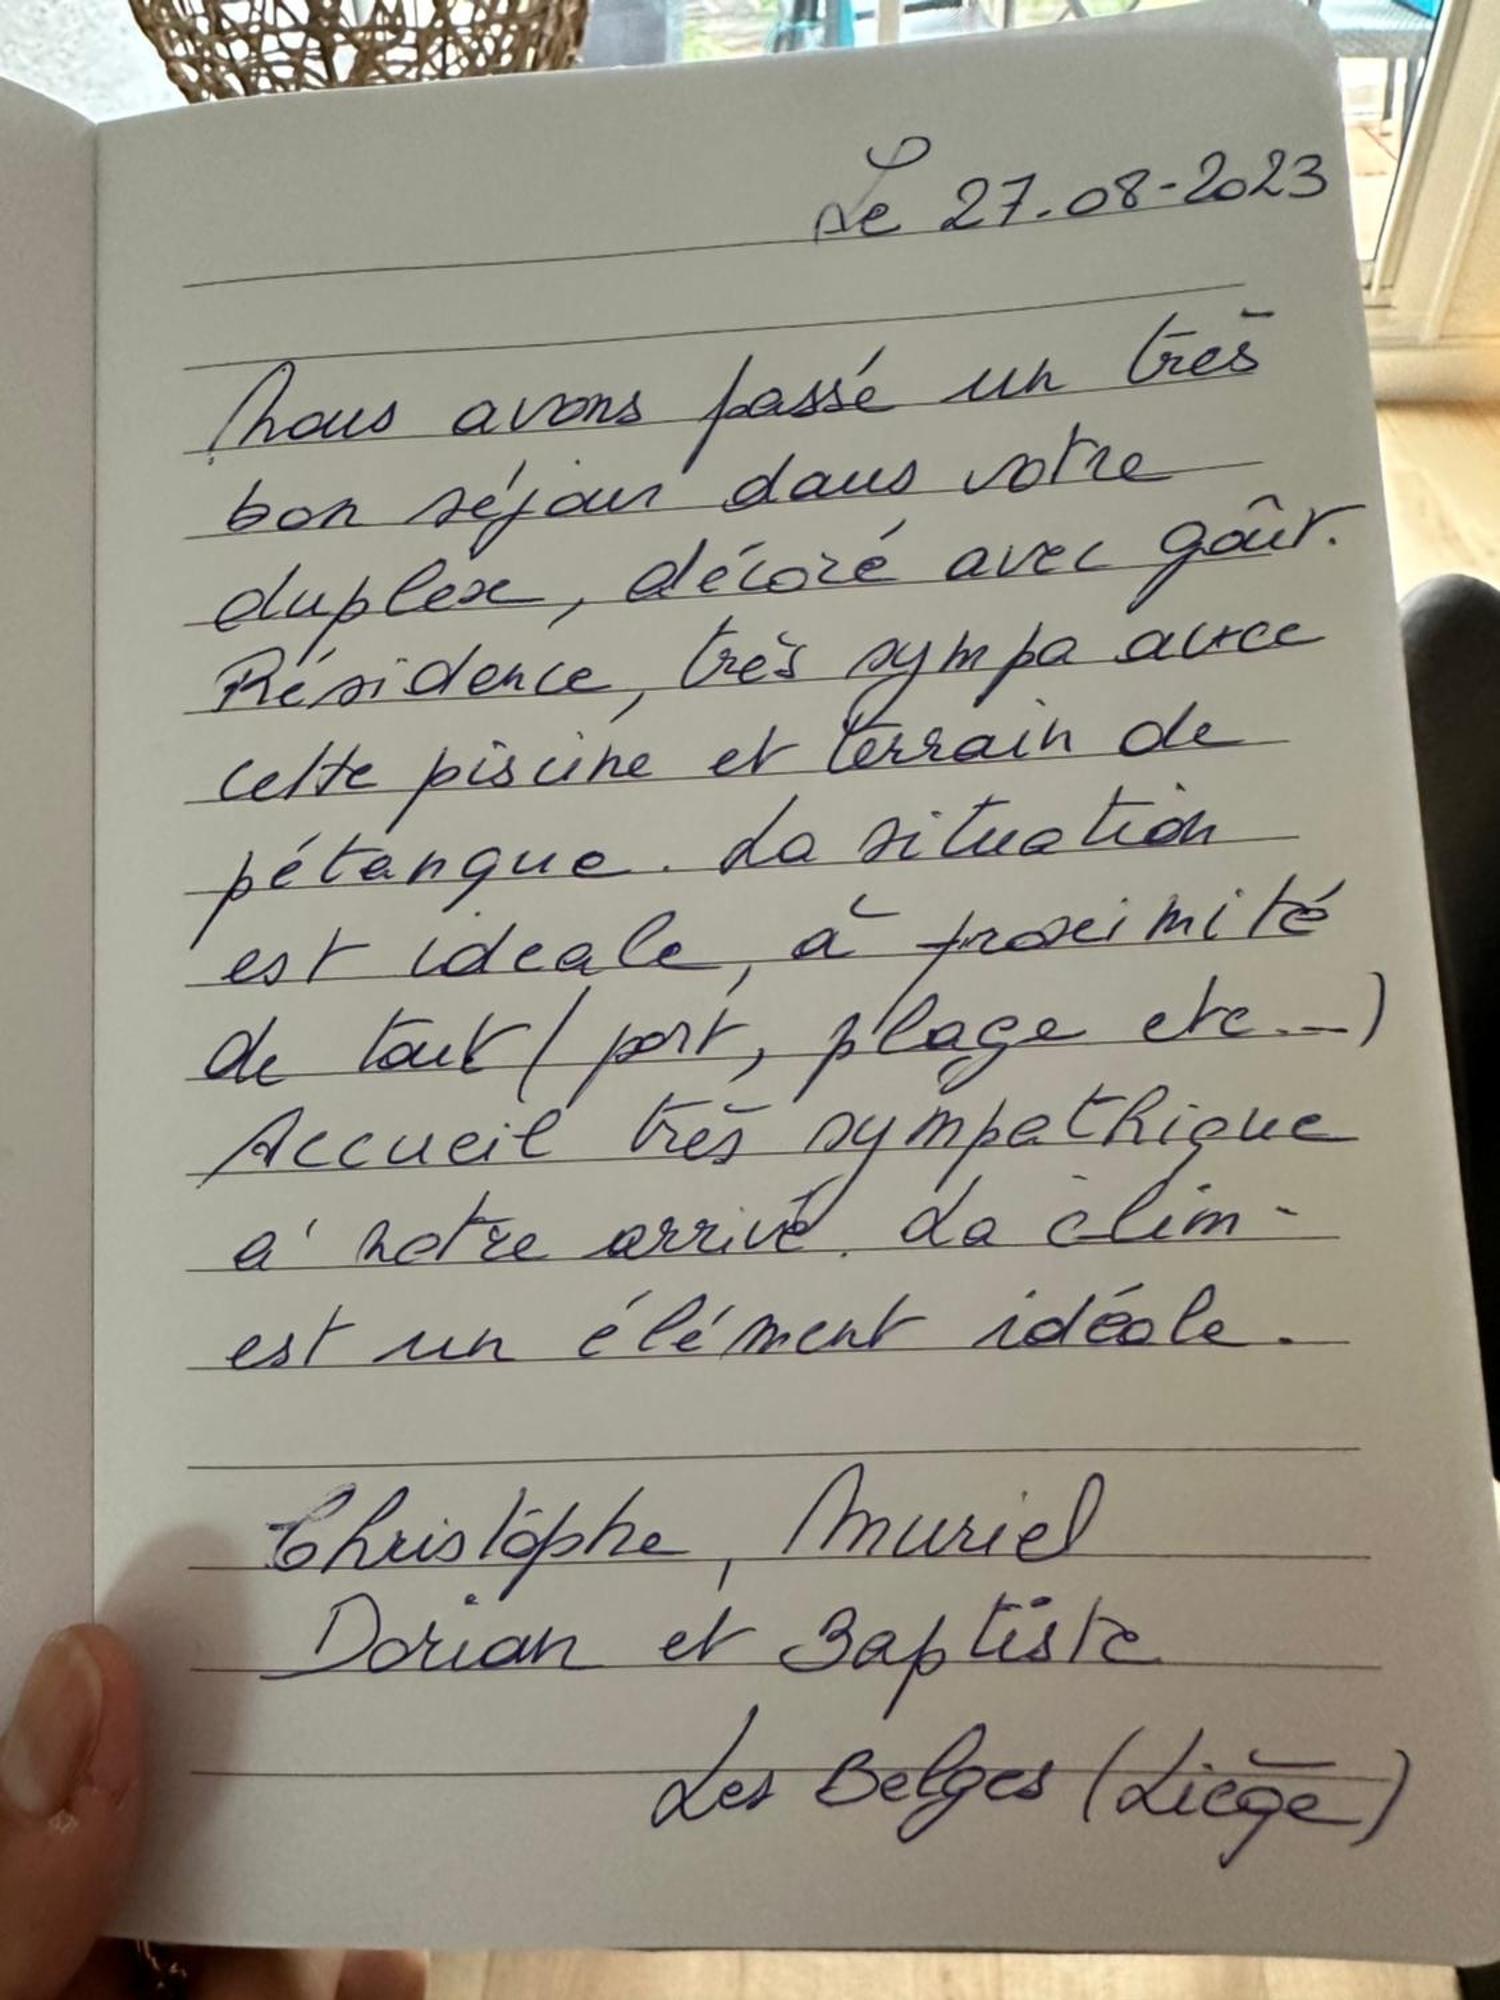 Le 27.08-2023
Nous avons passé un très
bon séjour dans votre
duplex, décoré avec goût.
Résidence, très sympa avec
cette piscine et terrain de
pétanque. La situation
est ideale, à proximité
de tout (port, plage etc...)
Accueil très sympathique
à notre arrivé. La clim-
est un élément idéale.
Christophe, Muriel
Dorian et Baptiste
Les Belges (Liège)